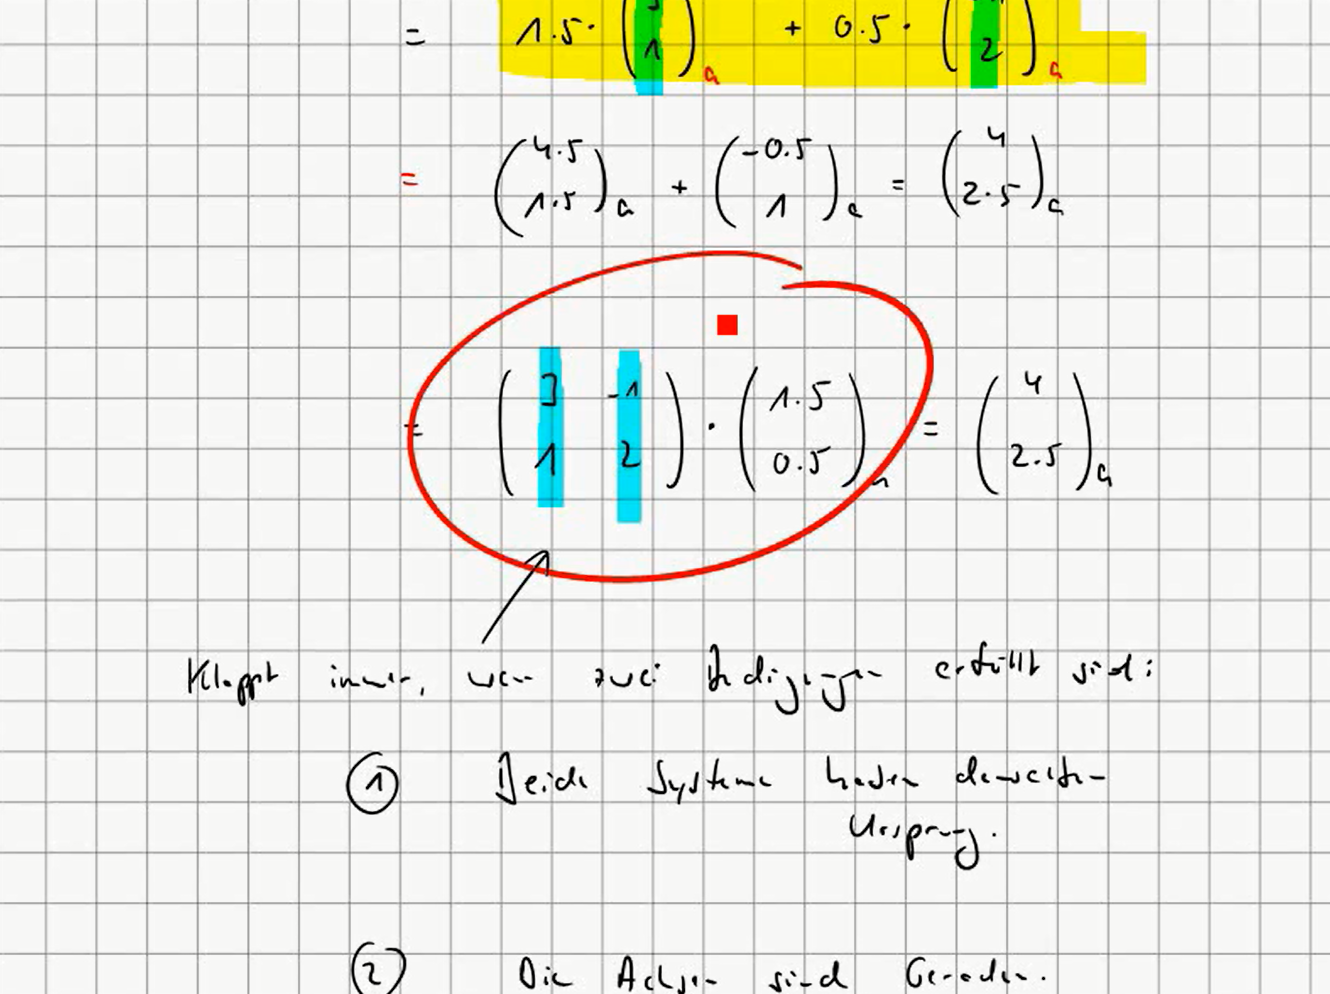 = 1.5 · (3 1)a + 0.5 · (-1 2)a
= (4.5 1.5)a + (-0.5 1)a = (4 2.5)a
= (3 -1 1 2) · (1.5 0.5)a = (4 2.5)a
Klappt immer, wenn zwei Bedingungen erfüllt sind:
1 Beide Systeme haben denselben
Ursprung.
2 Die Achsen sind Geraden.